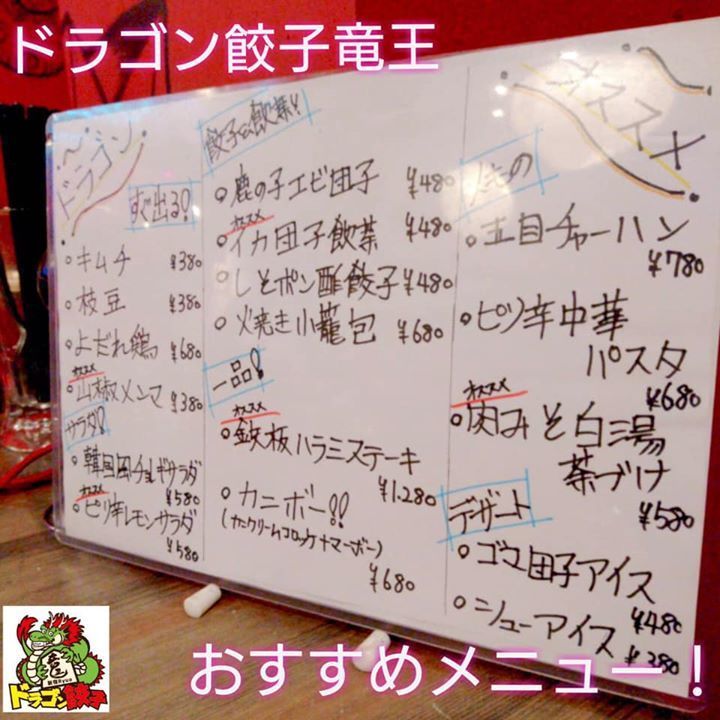 ドラゴン餃子竜王
ドラゴン
すぐ出る!
・キムチ ¥380
・枝豆 ¥380
・よだれ鶏 ¥680
オススメ
・山椒メンマ ¥380
サラダ!
・韓国風チョレギサラダ
¥580
オススメ
・ピリ辛レモンサラダ
¥580
餃子&飲茶!!
・鹿の子エビ団子 ¥480
オススメ
・イカ団子飲茶 ¥480
・しそポン酢餃子 ¥480
・火焼き小龍包 ¥680
一品!
オススメ
・鉄板ハラミステーキ
¥1.280
・カニボー!!
(カニクリームコロッケ+マーボー)
¥680
オススメ
〆もの
・五目チャーハン
¥780
・ピリ辛中華
パスタ
¥680
オススメ
・肉みそ白湯
茶づけ
¥580
デザート
・ゴマ団子アイス
¥480
・シューアイス
¥280
おすすめメニュー!
ドラゴン餃子